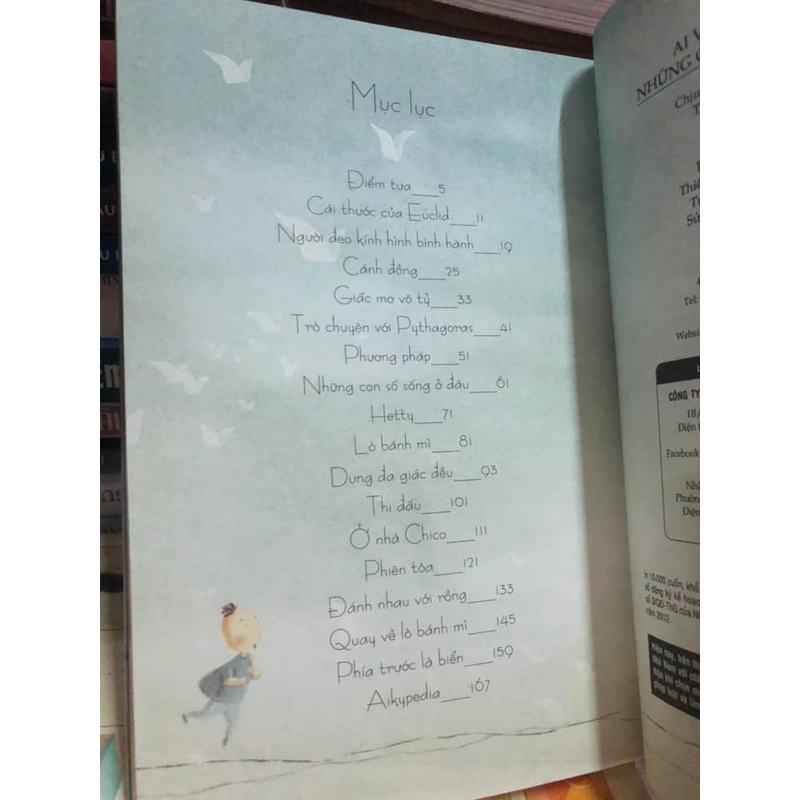 Mục lục
Điểm tựa___5
Cái thước của Euclid___11
Người đeo kính hình bình hành___19
Cánh đồng___25
Giấc mơ vô tỷ___33
Trò chuyện với Pythagoras___41
Phương pháp___51
Những con số sống ở đâu___61
Hetty___71
Lò bánh mì___81
Dựng đa giác đều___93
Thi đấu___101
Ở nhà Chico___111
Phiên tòa___121
Đánh nhau với rồng___133
Quay về lò bánh mì___145
Phía trước là biển___159
Aikypedia___167
AI V
NHỮNG
Chịu
Thiế
Tel:
Websi
CÔNG TY
1B/
Điện
Facebook
Nhà
Phườn
Điện
In 10.000 cuốn, khổ
số đăng ký kế hoạch
năm 2012.